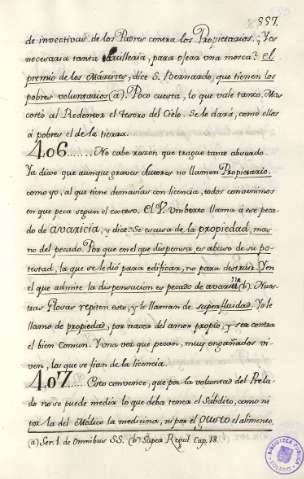 337.
de invectivas de los Padres contra los Propietarios. Yes
necesaria tanta Artilleria, para ojear una mosca? el
premio de los Mártires, dice S. Bernardo, que tienen los
pobres voluntarios (a). Poco cuesta, lo que vale tanto. Mas
costó al Redentor el tesoro del Cielo. Se le dará, como ellos
á pobres el de la tierra.
406..... No cabe razon que trague tanto abusado.
Ya dixe que aunque graves Autores no llaman Propietario,
como yo, al que tiene demasias con licencia, todos convenimos
en que peca segun el exceso. El V. Umberto llama á ese peca-
do de avaricia, y dice: Se escusa de la propiedad, mas
no del pecado. Por que en el que dispensa es abuso de su po-
testad, la que se le dió para edificar, no para destruir. Y en
el que admite la dispensacion es pecado de avaricia (b). Nues-
tras Glosas repiten esto, y le llaman de superfluidad. Yo le
llamo de propiedad, por nacer del amor propio, y ser contra
el bien Comun. Y una vez que pecan, muy engañados vi-
ven, los que se fian de la licencia.
407..... Esto convence, que por la voluntad del Prela-
do no se puede medir lo que deba tener el Súbdito, como ni
por la del Médico la medicina, ni por el gusto el alimento,
(a) Ser. 1 de Omnibus SS. (b) Super Regul. Cap. 18.